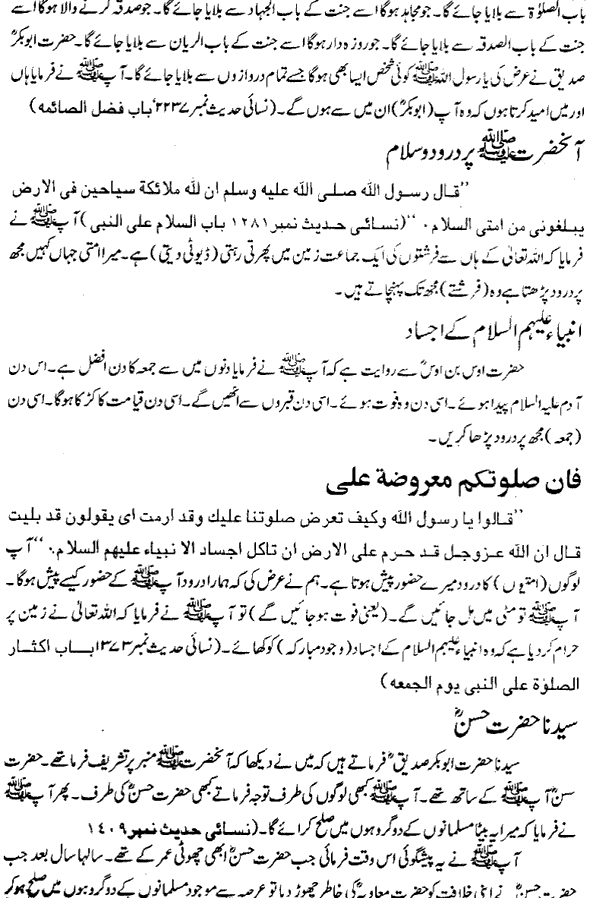 باب الصلوٰۃ سے بلایا جائے گا۔ جو مجاہد ہوگا اسے جنت کے باب الجہاد سے بلایا جائے گا۔ جو صدقہ کرنے والا ہوگا اسے
جنت کے باب الصدقہ سے بلایا جائے گا۔ جو روزہ دار ہوگا اسے جنت کے باب الریان سے بلایا جائے گا۔ حضرت ابوبکرؓ
صدیق نے عرض کی یا رسول اللہ ﷺ کوئی شخص ایسا بھی ہوگا جسے تمام دروازوں سے بلایا جائے گا۔ آپ ﷺ نے فرمایا ہاں
اور میں امید کرتا ہوں کہ وہ آپ (ابوبکرؓ) ان میں سے ہوں گے۔ (نسائی حدیث نمبر ۲۲۳۷ باب فضل الصائمہ)
آنحضرت ﷺ پر درود و سلام
”قال رسول الله صلى الله عليه وسلم ان لله ملائكة سياحين فى الارض
يبلغونى من امتى السلام۰“ (نسائی حدیث نمبر ۱۲۸۱ باب السلام علی النبی) آپ ﷺ نے
فرمایا کہ اللہ تعالیٰ کے ہاں سے فرشتوں کی ایک جماعت زمین میں پھرتی رہتی (ڈیوٹی دیتی) ہے۔ میرا امتی جہاں کہیں مجھ
پر درود پڑھتا ہے وہ (فرشتے) مجھ تک پہنچاتے ہیں۔
انبیاء علیہم السلام کے اجساد
حضرت اوس بن اوسؓ سے روایت ہے کہ آپ ﷺ نے فرمایا دنوں میں سے جمعہ کا دن افضل ہے۔ اس دن
آدم علیہ السلام پیدا ہوئے۔ اسی دن وہ فوت ہوئے۔ اسی دن قبروں سے اٹھیں گے۔ اسی دن قیامت کا کڑکا ہوگا۔ اسی دن
(جمعہ) مجھ پر درود پڑھا کریں۔
فان صلوتكم معروضة على
”قالوا يا رسول الله وكيف تعرض صلوتنا عليك وقد ارمت اى يقولون قد بليت
قال ان الله عزوجل قد حرم على الارض ان تاكل اجساد الا نبياء عليهم السلام۰“ آپ
لوگوں (امتیوں) کا درود میرے حضور پیش ہوتا ہے۔ ہم نے عرض کی کہ ہمارا درود آپ ﷺ کے حضور کیسے پیش ہوگا۔
آپ ﷺ تو مٹی میں مل جائیں گے۔ (یعنی فوت ہو جائیں گے) تو آپ ﷺ نے فرمایا کہ اللہ تعالیٰ نے زمین پر
حرام کر دیا ہے کہ وہ انبیاء علیہم السلام کے اجساد (وجود مبارکہ) کو کھائے۔ (نسائی حدیث نمبر ۱۳۷۳ باب اکثار
الصلوٰۃ علی النبی یوم الجمعہ)
سیدنا حضرت حسنؓ
سیدنا حضرت ابوبکر صدیقؓ فرماتے ہیں کہ میں نے دیکھا کہ آنحضرت ﷺ منبر پر تشریف فرما تھے۔ حضرت
حسنؓ آپ ﷺ کے ساتھ تھے۔ آپ ﷺ کبھی لوگوں کی طرف توجہ فرماتے کبھی حضرت حسنؓ کی طرف۔ پھر آپ ﷺ
نے فرمایا کہ میرا یہ بیٹا مسلمانوں کے دو گروہوں میں صلح کرائے گا۔ (نسائی حدیث نمبر ۱۴۰۹
آپ ﷺ نے یہ پیشگوئی اس وقت فرمائی جب حضرت حسنؓ ابھی چھوٹی عمر کے تھے۔ سالہا سال بعد جب
حضرت حسنؓ نے اپنی خلافت کو حضرت معاویہؓ کی خاطر چھوڑ دیا تو عرصہ سے موجود مسلمانوں کے دو گروہوں میں صلح ہوکر